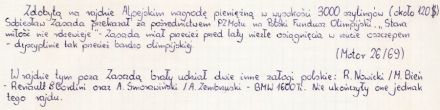 Zdobytą na rajdzie Alpejskim nagrodę pieniężną w wysokości 3000 szylingów (około 120$)
Sobiesław Zasada przekazał za pośrednictwem PZMotu na Polski Fundusz Olimpijski. "Stara
miłość nie rdzewieje" - Zasada miał przecież przed laty niezłe osiągnięcia w rzucie oszczepem
- dyscyplinie tak przecież bardzo olimpijskiej.
(Motor 26/69)
W rajdzie tym poza Zasadą brały udział dwie inne załogi polskie: R. Nowicki / M. Bień
- Renault 8 Gordini oraz A. Smorawiński / A. Zembrzuski - BMW 1600 Ti. Nie ukończyły one jednak
tego rajdu.